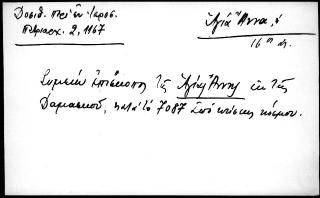 Δοσιθ. Περὶ ἐν Ιεροσ.
Πατριαρχ. 2, 1167
Ἁγία Ἄννα, ἡ
16ος αἰ.
Συμεὼν ἐπίσκοπος τῆς Ἁγίας Ἄννης ἐκ τῆς
Δαμασκοῦ, κατὰ τὸ 7087 ἀπὸ κτίσεως κόσμου.